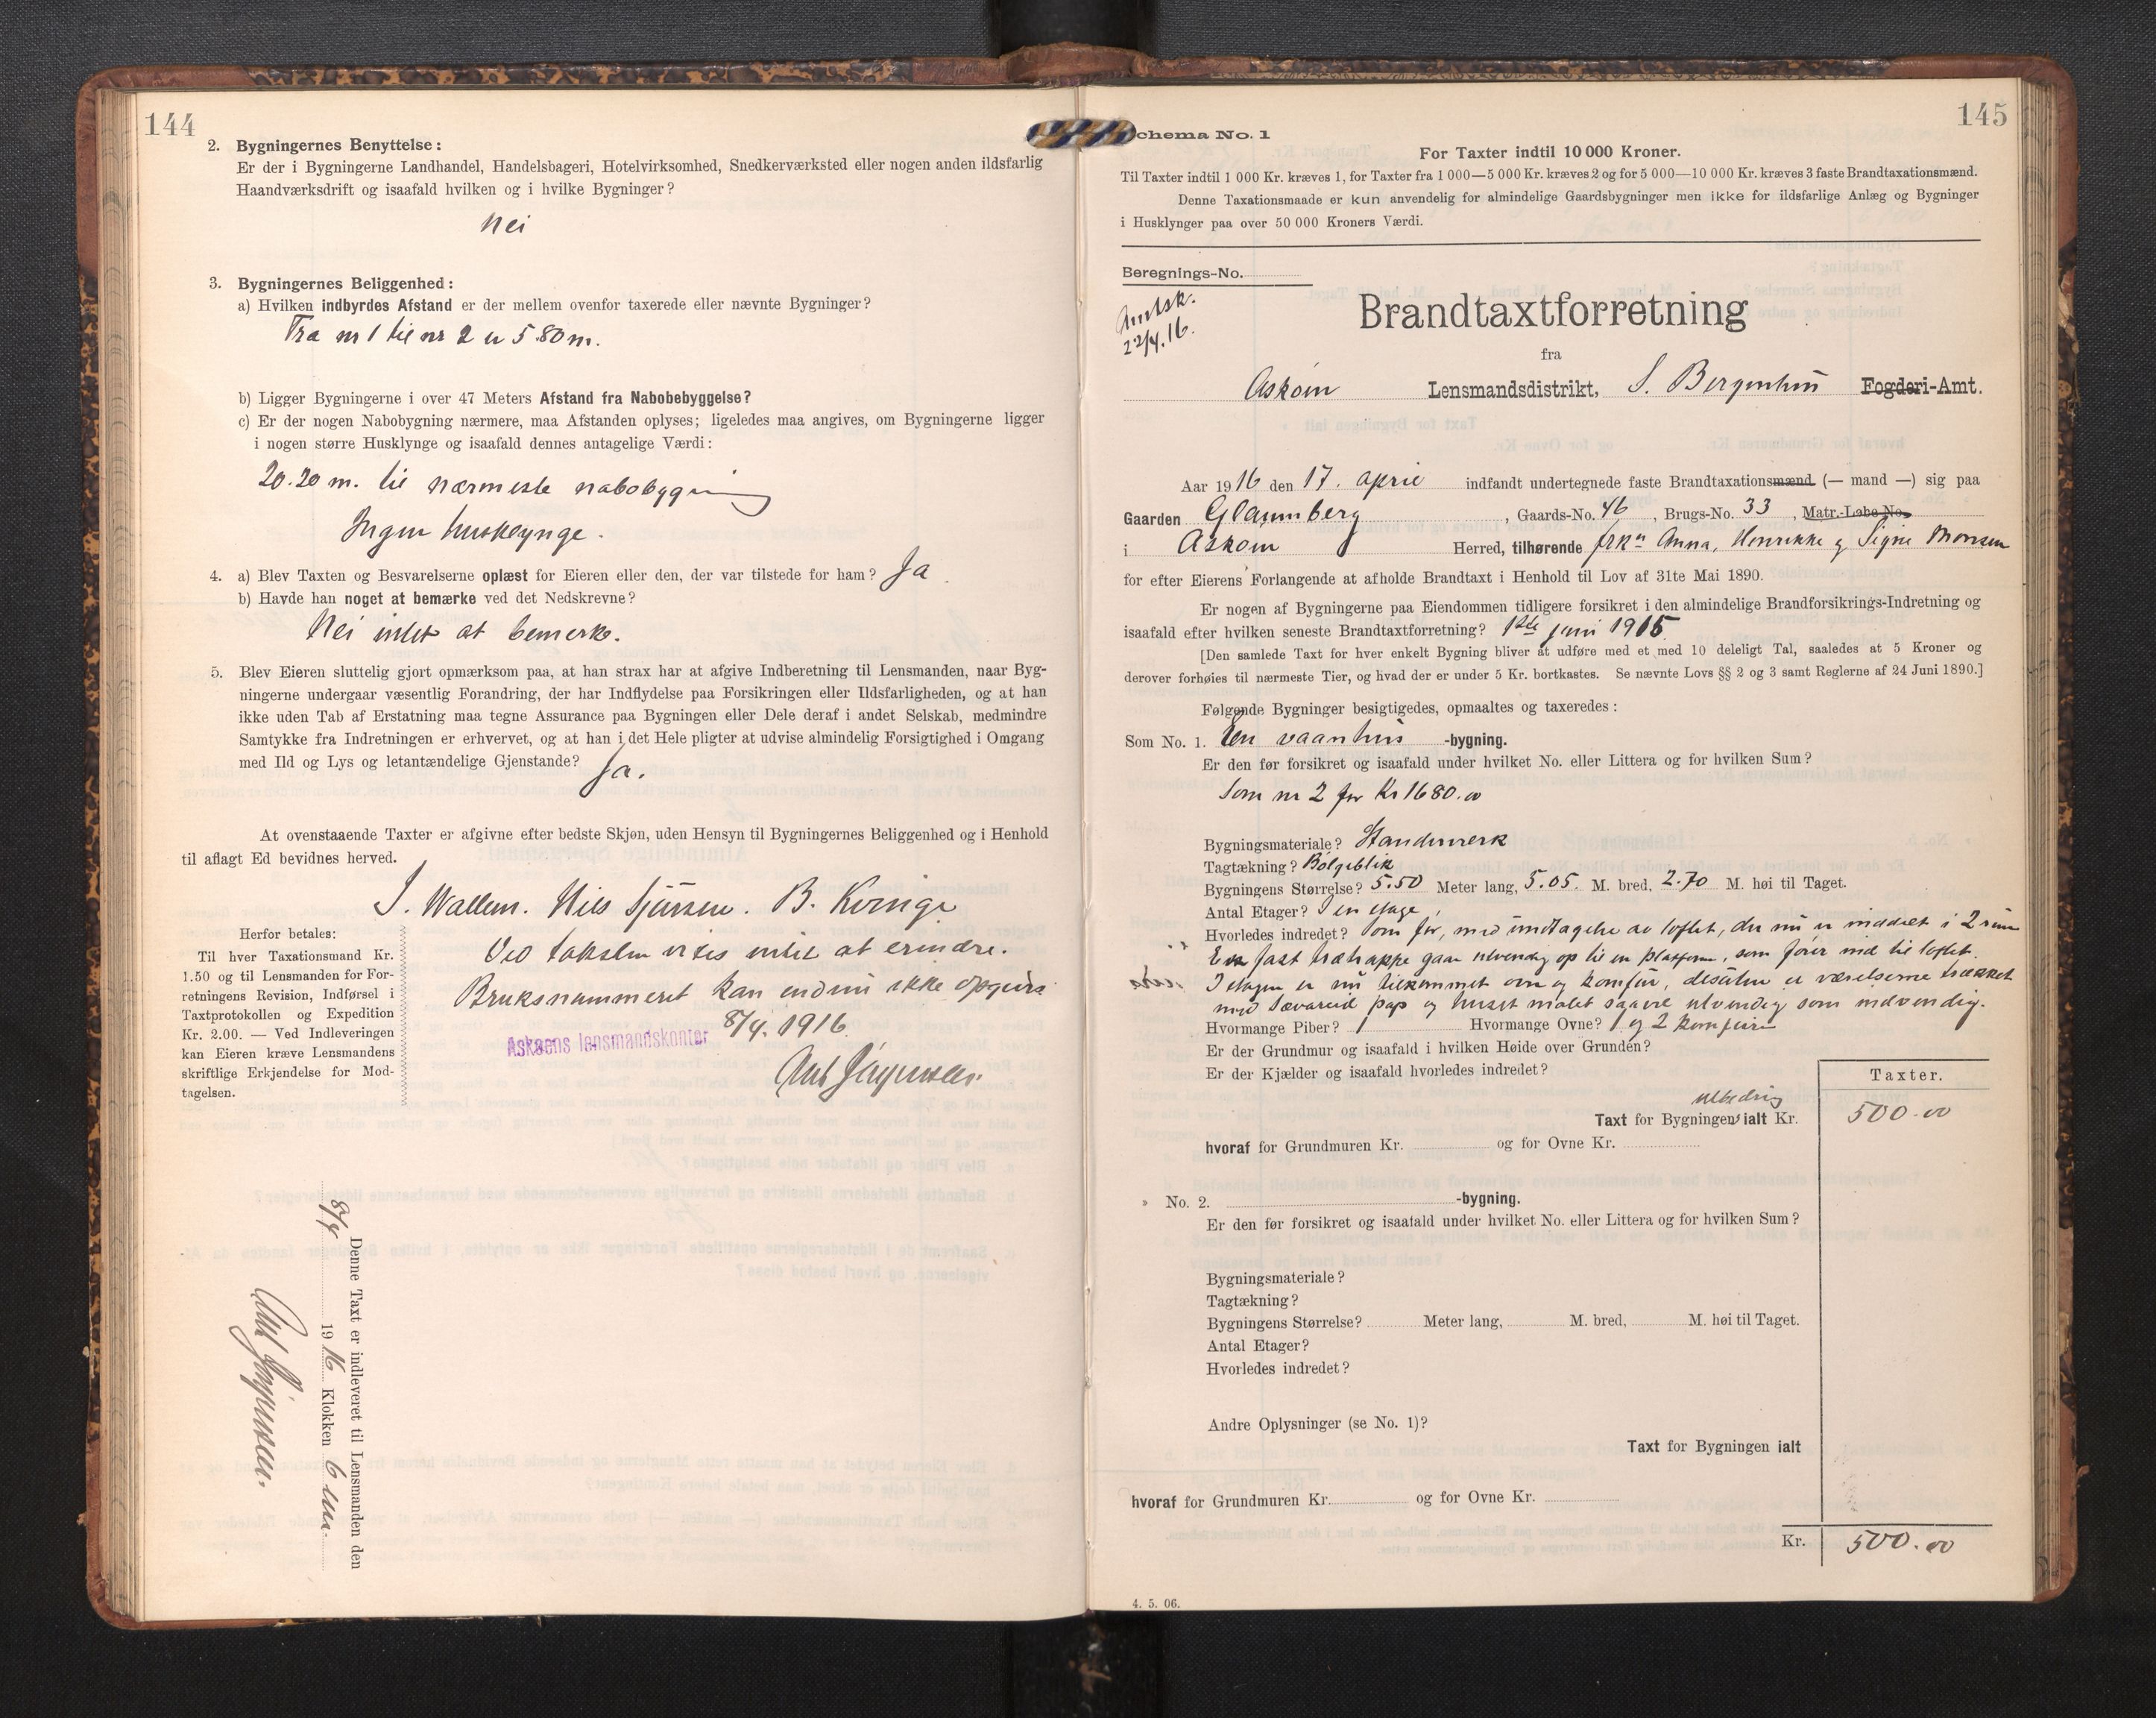 144
2. Bygningernes Benyttelse:
Er der i Bygningerne Landhandel, Handelsbageri, Hotelvirksomhed, Snedkerværksted eller nogen anden ildsfarlig
Haandværksdrift og isaafald hvilken og i hvilke Bygninger?
Nei
3. Bygningernes Beliggenhed:
a) Hvilken indbyrdes Afstand er der mellem ovenfor taxerede eller nævnte Bygninger?
Fra nr 1 til nr 2 er 5.80 m.
b) Ligger Bygningerne i over 47 Meters Afstand fra Nabobebyggelse?
c) Er der nogen Nabobygning nærmere, maa Afstanden oplyses; ligeledes maa angives, om Bygningerne ligger
i nogen større Husklynge og isaafald dennes antagelige Værdi:
20.20 m. til nærmeste nabobygning
Ingen husklynge.
4. a) Blev Taxten og Besvarelserne oplæst for Eieren eller den, der var tilstede for ham? Ja
b) Havde han noget at bemærke ved det Nedskrevne?
Nei intet at bemerke.
5. Blev Eieren sluttelig gjort opmærksom paa, at han strax har at afgive Indberetning til Lensmanden, naar Byg-
ningerne undergaar væsentlig Forandring, der har Indflydelse paa Forsikringen eller Ildsfarligheden, og at han
ikke uden Tab af Erstatning maa tegne Assurance paa Bygningen eller Dele deraf i andet Selskab, medmindre
Samtykke fra Indretningen er erhvervet, og at han i det Hele pligter at udvise almindelig Forsigtighed i Omgang
med Ild og Lys og letantændelige Gjenstande? Ja.
At ovenstaaende Taxter er afgivne efter bedste Skjøn, uden Hensyn til Bygningernes Beliggenhed og i Henhold
til aflagt Ed bevidnes herved.
J. Wallem. Nils Sjursen. B. Kvinge
Ved taksten vites intet at erindre.
Bruksnummeret kan endnu ikke opgives
8/4. 1916
Askøens lensmandskontor
Herfor betales:
Til hver Taxationsmand Kr.
1.50 og til Lensmanden for For-
retningens Revision, Indførsel i
Taxtprotokollen og Expedition
Kr. 2.00. — Ved Indleveringen
kan Eieren kræve Lensmandens
skriftlige Erkjendelse for Mod-
tagelsen.
Denne Taxt er indleveret til Lensmanden den
8/4 1916 Klokken 6 em.
145
chema No. 1
For Taxter indtil 10 000 Kroner.
Til Taxter indtil 1 000 Kr. kræves 1, for Taxter fra 1 000—5 000 Kr. kræves 2 og for 5 000—10 000 Kr. kræves 3 faste Brandtaxationsmænd.
Denne Taxationsmaade er kun anvendelig for almindelige Gaardsbygninger men ikke for ildsfarlige Anlæg og Bygninger
i Husklynger paa over 50 000 Kroners Værdi.
Beregnings-No.
22/4.16.
Brandtaxtforretning
fra
Askøen Lensmandsdistrikt, S. Bergenhus Fogderi-Amt.
Aar 1916 den 17. april indfandt undertegnede faste Brandtaxationsmænd (— mand —) sig paa
Gaarden Glaumberg, Gaards-No. 46, Brugs-No. 33, Matr.-Løbe-No.
i Askøen Herred, tilhørende frkn Anna, Henrikke og Signe Monsen
for efter Eierens Forlangende at afholde Brandtaxt i Henhold til Lov af 31te Mai 1890.
Er nogen af Bygningerne paa Eiendommen tidligere forsikret i den almindelige Brandforsikrings-Indretning og
isaafald efter hvilken seneste Brandtaxtforretning? 1ste juni 1915
[Den samlede Taxt for hver enkelt Bygning bliver at udføre med et med 10 deleligt Tal, saaledes at 5 Kroner og
derover forhøies til nærmeste Tier, og hvad der er under 5 Kr. bortkastes. Se nævnte Lovs §§ 2 og 3 samt Reglerne af 24 Juni 1890.]
Følgende Bygninger besigtigedes, opmaaltes og taxeredes:
Som No. 1. En vaanhus -bygning.
Er den før forsikret og isaafald under hvilket No. eller Littera og for hvilken Sum?
Som nr 2 for Kr 1680.00
Bygningsmateriale? Standerverk
Tagtækning? Bølgeblik
Bygningens Størrelse? 5.50 Meter lang, 5.05. M. bred, 2.70 M. høi til Taget.
Antal Etager? I en etage,
Hvorledes indredet? Som før, med undtagelse av loftet, der nu er inddelt i 2 rum
En fast trætrappe gaar utvendig op til en platform, som fører ind til loftet.
I etagen er nu tilkommet ovn og komfur, desuten er værelserne trækket
med pap og huset malet saavel utvendig som indvendig.
Hvormange Piber? 1 Hvormange Ovne? 1 og 2 komfurer
Er der Grundmur og isaafald i hvilken Høide over Grunden?
Er der Kjælder og isaafald hvorledes indredet?
Taxter.
utbedring
Taxt for Bygningens ialt Kr. 500.00
hvoraf for Grundmuren Kr. og for Ovne Kr.
» No. 2. -bygning.
Er den før forsikret og isaafald under hvilket No. eller Littera og for hvilken Sum?
Bygningsmateriale?
Tagtækning?
Bygningens Størrelse? Meter lang, M. bred, M. høi til Taget.
Antal Etager?
Hvorledes indredet?
Andre Oplysninger (se No. 1)?
Taxt for Bygningen ialt
hvoraf for Grundmuren Kr. og for Ovne Kr.
Kr. 500.00
4. 5. 06.